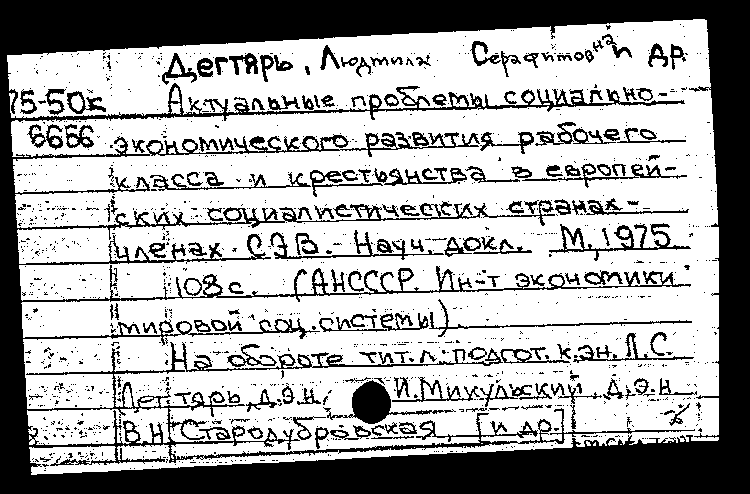 Дегтярь, Людмила Серафимовна и др.
75-50к Актуальные проблемы социально-
6666 экономического развития рабочего
класса и крестьянства в европей-
ских социалистических странах-
членах СЭВ. - Науч. докл. М., 1975
108 с. (АН СССР. Ин-т экономики
мировой соц. системы).
На обороте тит. л.: подгот. к.эн. Л.С.
Дегтярь, д.э.н. И. Микульский, д.э.н
В.Н. Стародубровская, [и др.]